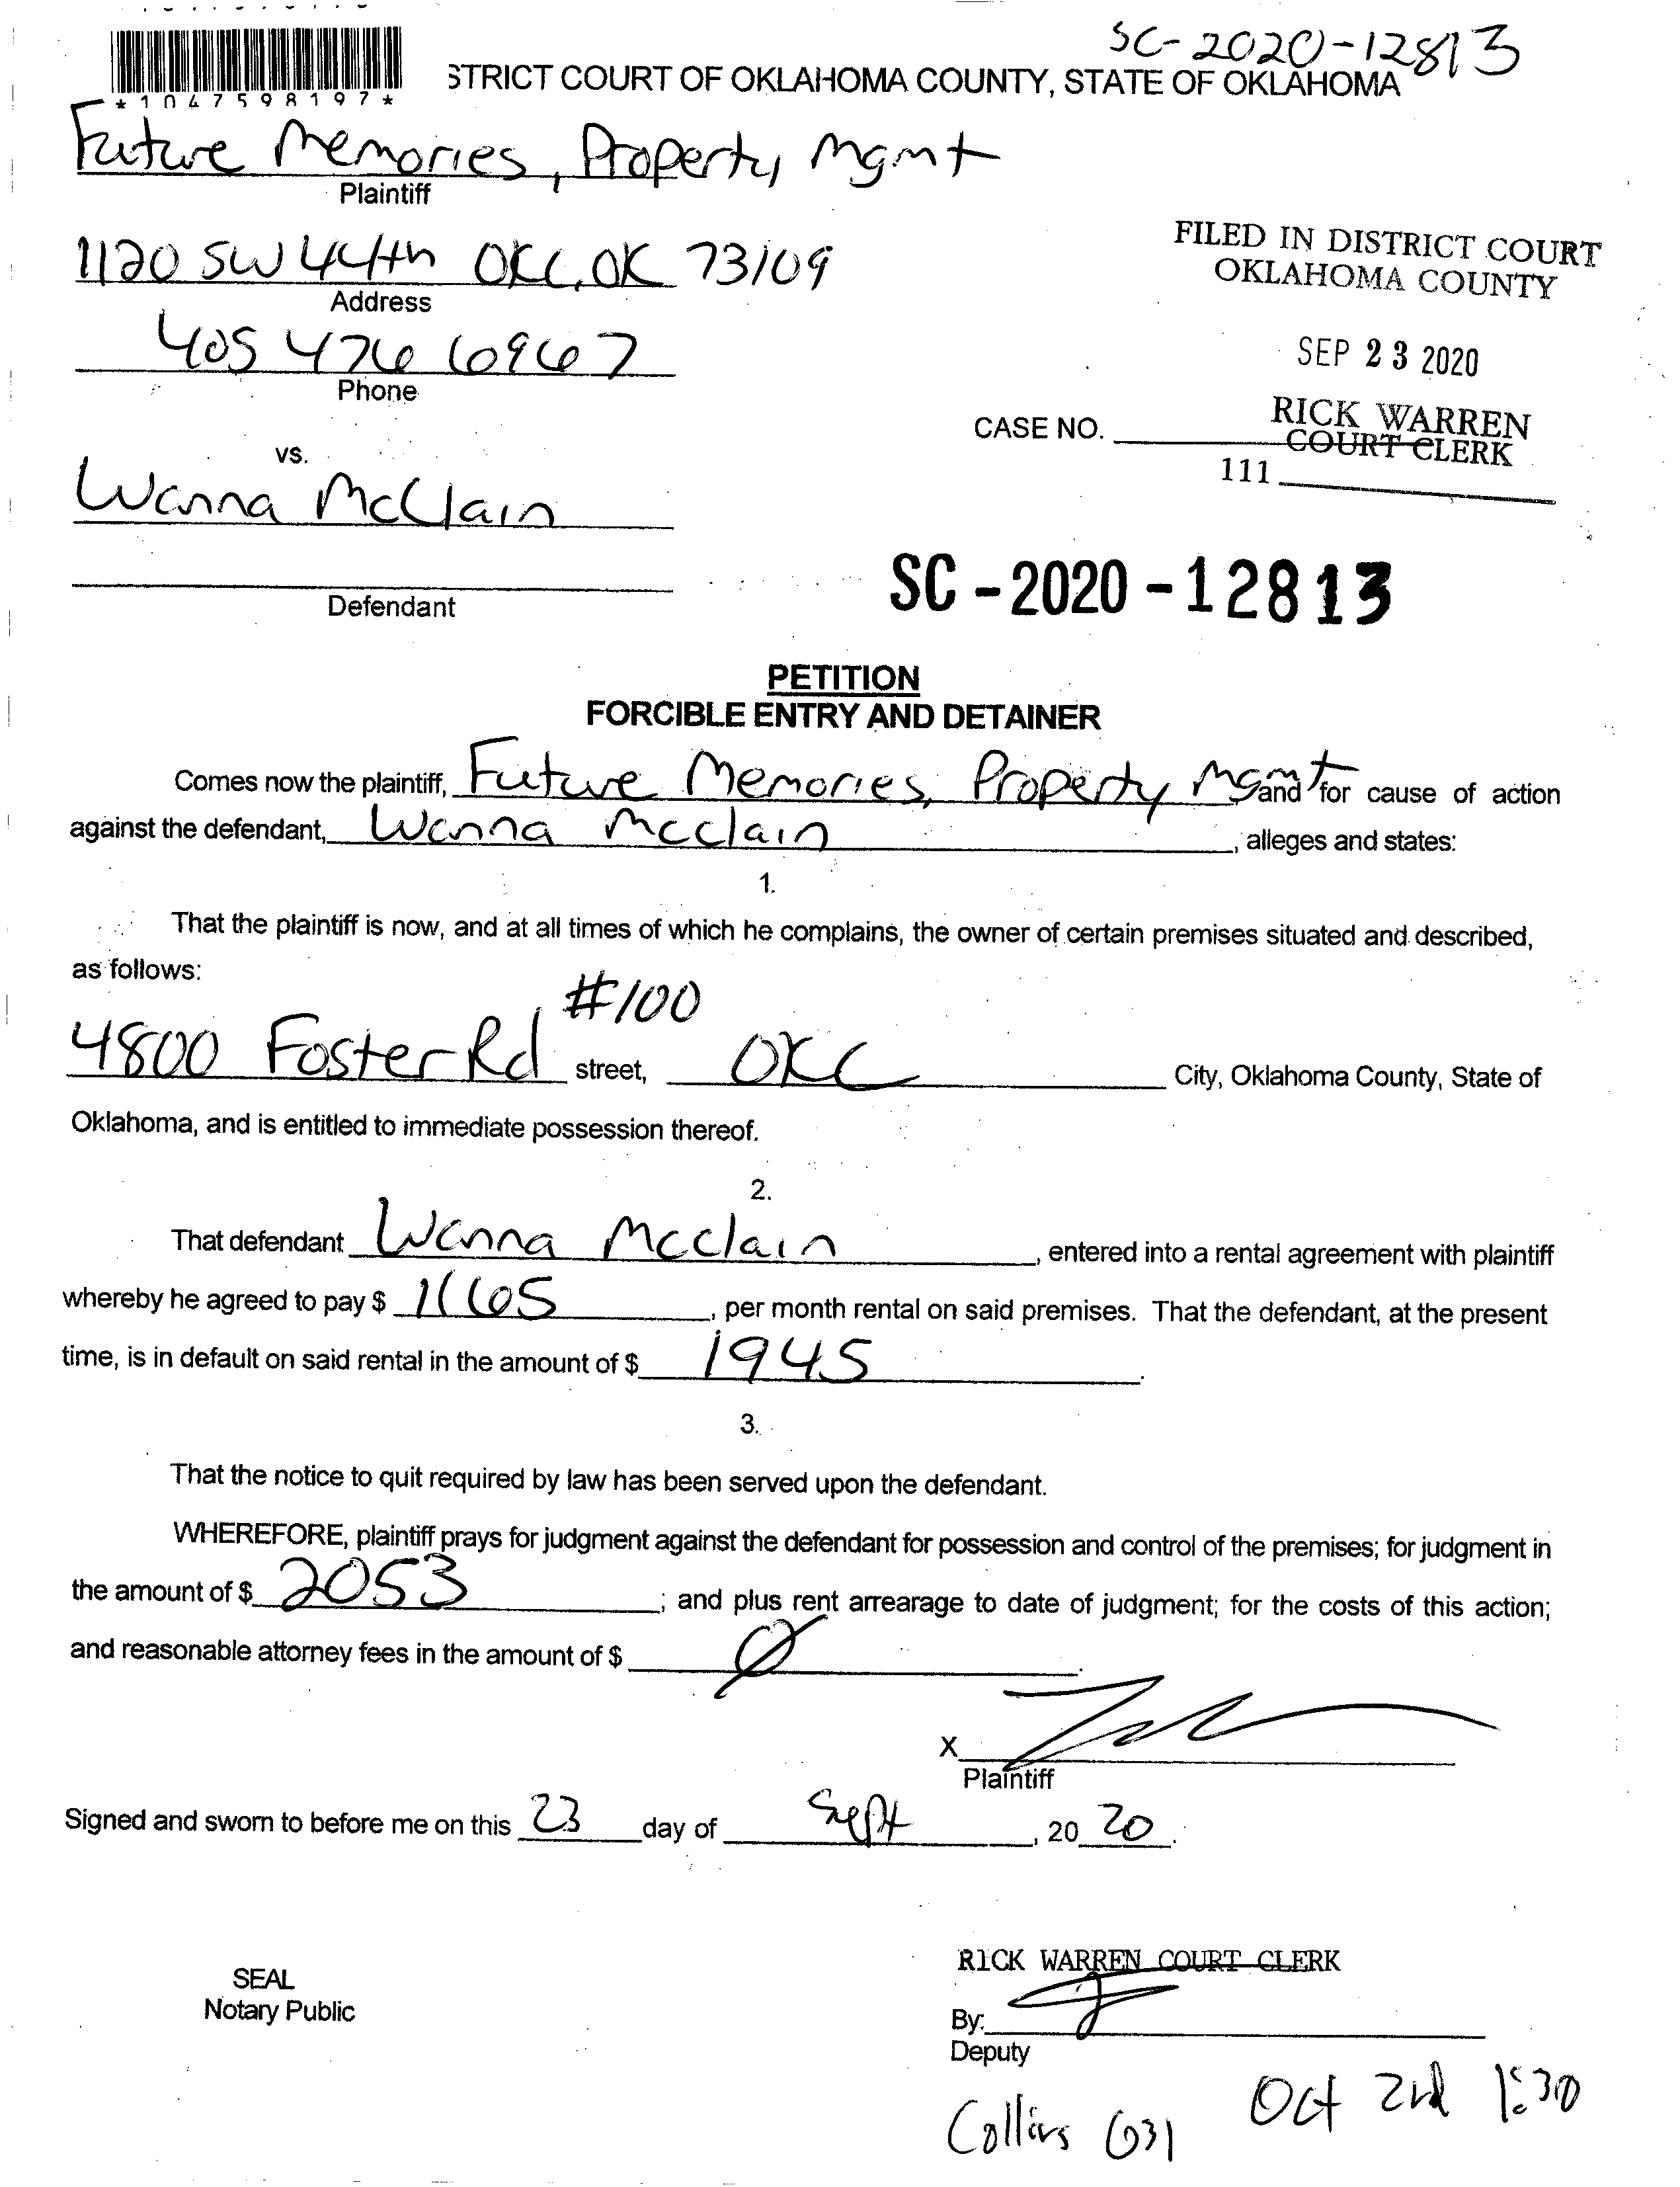 SC-2020-12813
*1047598197*
STRICT COURT OF OKLAHOMA COUNTY, STATE OF OKLAHOMA
Future Memories, Property Mgmt
Plaintiff
1120 SW 44th OKC, OK 73109
Address
FILED IN DISTRICT COURT
OKLAHOMA COUNTY
405 476 6967
Phone
SEP 23 2020
CASE NO.
RICK WARREN
COURT CLERK
111
vs.
Wanna McClain
Defendant
SC-2020-12813
PETITION
FORCIBLE ENTRY AND DETAINER
Comes now the plaintiff, Future Memories, Property Mgmt and for cause of action
against the defendant, Wanna Mcclain, alleges and states:
1.
That the plaintiff is now, and at all times of which he complains, the owner of certain premises situated and described,
as follows:
#100
4800 Foster Rd street, OKC City, Oklahoma County, State of
Oklahoma, and is entitled to immediate possession thereof.
2.
That defendant Wanna Mcclain, entered into a rental agreement with plaintiff
whereby he agreed to pay $ 1165, per month rental on said premises. That the defendant, at the present
time, is in default on said rental in the amount of $ 1945.
3.
That the notice to quit required by law has been served upon the defendant.
WHEREFORE, plaintiff prays for judgment against the defendant for possession and control of the premises; for judgment in
the amount of $ 2053; and plus rent arrearage to date of judgment; for the costs of this action;
and reasonable attorney fees in the amount of $ Ø.
X
Plaintiff
Signed and sworn to before me on this 23 day of Sept, 20 20.
RICK WARREN COURT CLERK
SEAL
Notary Public
By:
Deputy
Collins 631 Oct 2nd 1:30